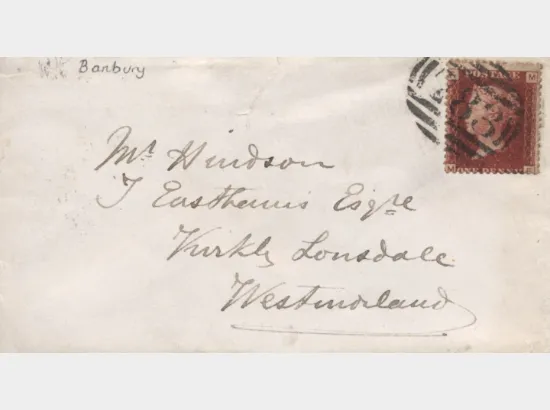 Banbury
POSTAGE
M
83
Mr Hindson
J Eastham's Esqre
Kirkby Lonsdale
Westmorland